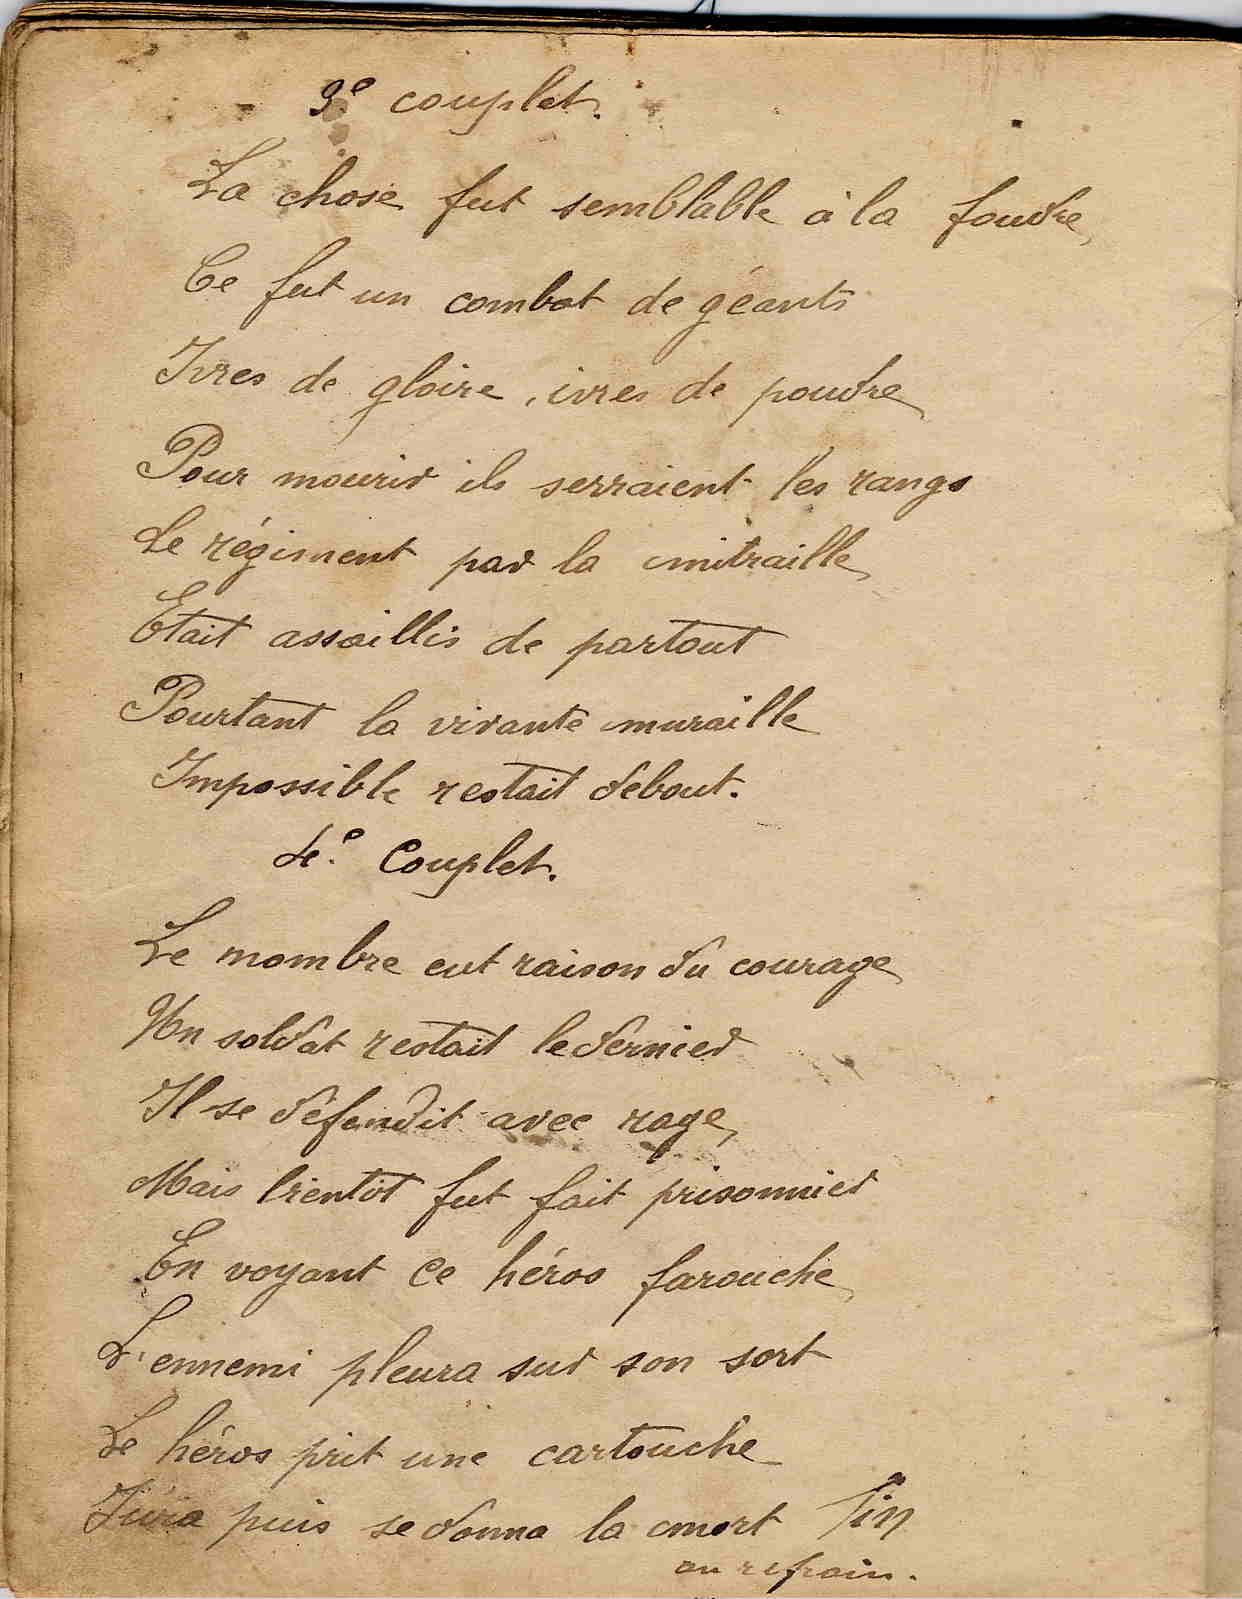 3e couplet.
La chose fut semblable à la foudre
Ce fut un combat de géants
Ivres de gloire, ivres de poudre
Pour mourir ils serraient les rangs
Le régiment par la mitraille
Etait assaillis de partout
Pourtant la vivante muraille
Impossible restait debout.
4e. Couplet.
Le nombre eut raison du courage
Un soldat restait le dernier
Il se défendit avec rage,
Mais bientôt fut fait prisonnier
En voyant ce héros farouche
L'ennemi pleura sur son sort
Le héros prit une cartouche
Jura puis se donna la mort Fin
au refrain.